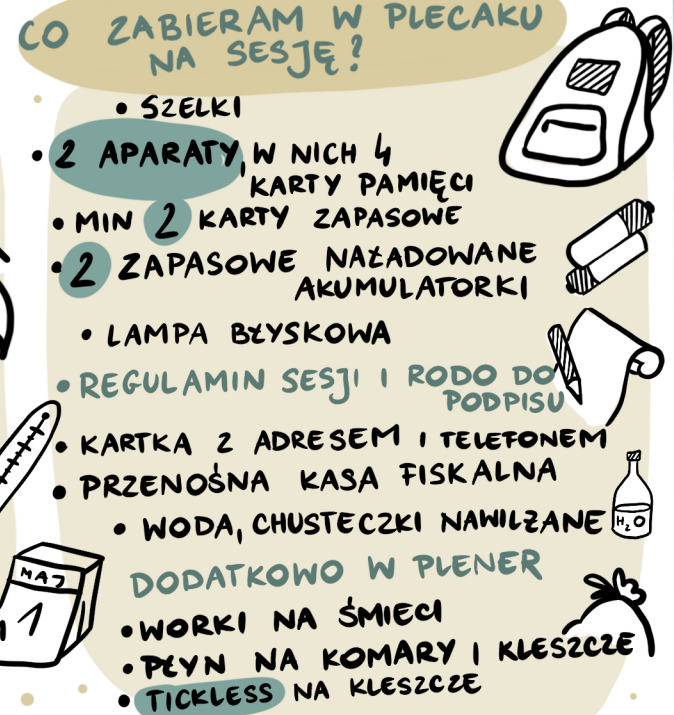 CO ZABIERAM W PLECAKU
NA SESJĘ?
• SZELKI
• 2 APARATY, W NICH 4
KARTY PAMIĘCI
• MIN 2 KARTY ZAPASOWE
• 2 ZAPASOWE NAŁADOWANE
AKUMULATORKI
• LAMPA BŁYSKOWA
• REGULAMIN SESJI I RODO DO
PODPISU
• KARTKA Z ADRESEM I TELEFONEM
• PRZENOŚNA KASA FISKALNA
• WODA, CHUSTECZKI NAWILŻANE
H2O
DODATKOWO W PLENER
MAJ
1
• WORKI NA ŚMIECI
• PŁYN NA KOMARY I KLESZCZE
• TICKLESS NA KLESZCZE